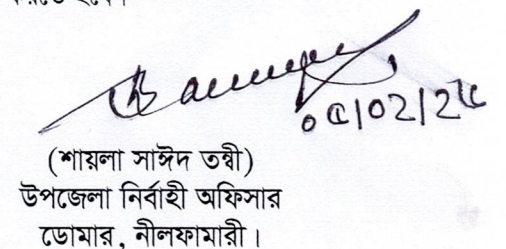 ০৫/০২/২৫
(শায়লা সাঈদ তন্বী)
উপজেলা নির্বাহী অফিসার
ডোমার, নীলফামারী।